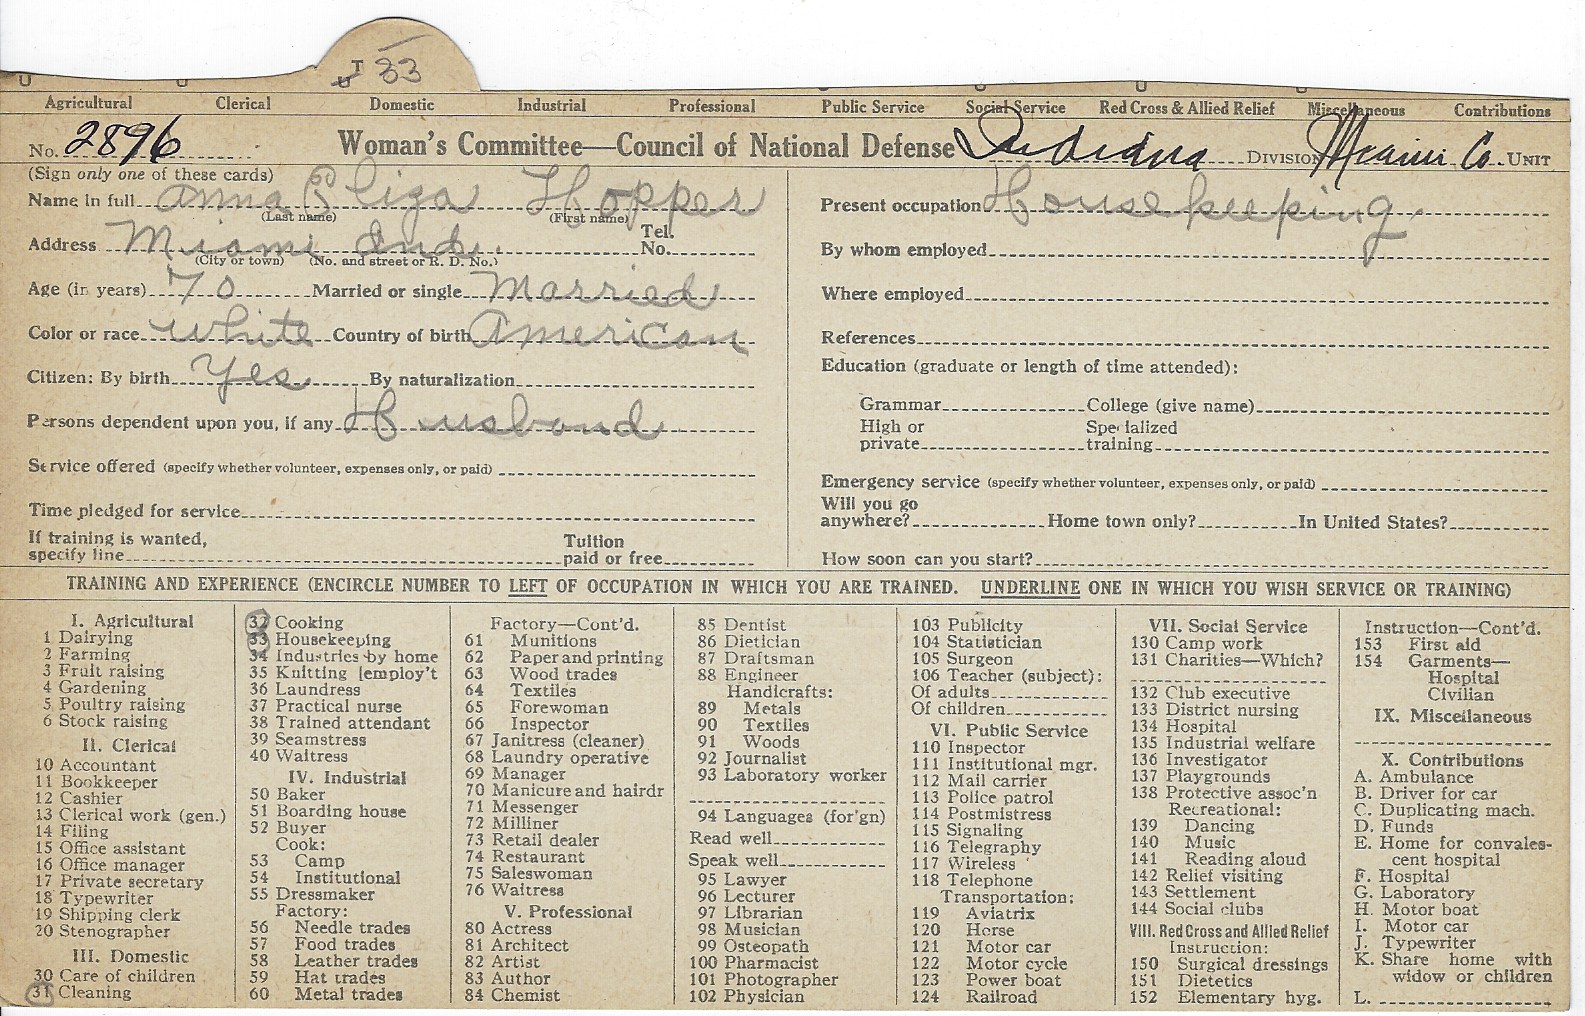 33
Agricultural Clerical Domestic Industrial Professional Public Service Social Service Red Cross & Allied Relief Miscellaneous Contributions
No. 2896 Woman's Committee—Council of National Defense Indiana DIVISION Miami Co. UNIT
(Sign only one of these cards)
Name in full Anna Eliza Hopper
(Last name) (First name)
Address Miami Ind. Tel. No.
(City or town) (No. and street or R. D. No.)
Age (in years) 70 Married or single Married
Color or race white Country of birth American
Citizen: By birth Yes By naturalization
Persons dependent upon you, if any Husband
Service offered (specify whether volunteer, expenses only, or paid)
Time pledged for service
If training is wanted, specify line Tuition paid or free
Present occupation Housekeeping
By whom employed
Where employed
References
Education (graduate or length of time attended):
Grammar College (give name)
High or private Specialized training
Emergency service (specify whether volunteer, expenses only, or paid)
Will you go anywhere? Home town only? In United States?
How soon can you start?
TRAINING AND EXPERIENCE (ENCIRCLE NUMBER TO LEFT OF OCCUPATION IN WHICH YOU ARE TRAINED. UNDERLINE ONE IN WHICH YOU WISH SERVICE OR TRAINING)
I. Agricultural
1 Dairying
2 Farming
3 Fruit raising
4 Gardening
5 Poultry raising
6 Stock raising
II. Clerical
10 Accountant
11 Bookkeeper
12 Cashier
13 Clerical work (gen.)
14 Filing
15 Office assistant
16 Office manager
17 Private secretary
18 Typewriter
19 Shipping clerk
20 Stenographer
III. Domestic
30 Care of children
31 Cleaning
32 Cooking
33 Housekeeping
34 Industries by home
35 Knitting [employ't
36 Laundress
37 Practical nurse
38 Trained attendant
39 Seamstress
40 Waitress
IV. Industrial
50 Baker
51 Boarding house
52 Buyer
Cook:
53 Camp
54 Institutional
55 Dressmaker
Factory:
56 Needle trades
57 Food trades
58 Leather trades
59 Hat trades
60 Metal trades
Factory—Cont'd.
61 Munitions
62 Paper and printing
63 Wood trades
64 Textiles
65 Forewoman
66 Inspector
67 Janitress (cleaner)
68 Laundry operative
69 Manager
70 Manicure and hairdr
71 Messenger
72 Milliner
73 Retail dealer
74 Restaurant
75 Saleswoman
76 Waitress
V. Professional
80 Actress
81 Architect
82 Artist
83 Author
84 Chemist
85 Dentist
86 Dietician
87 Draftsman
88 Engineer
Handicrafts:
89 Metals
90 Textiles
91 Woods
92 Journalist
93 Laboratory worker
94 Languages (for'gn)
Read well
Speak well
95 Lawyer
96 Lecturer
97 Librarian
98 Musician
99 Osteopath
100 Pharmacist
101 Photographer
102 Physician
103 Publicity
104 Statistician
105 Surgeon
106 Teacher (subject):
Of adults
Of children
VI. Public Service
110 Inspector
111 Institutional mgr.
112 Mail carrier
113 Police patrol
114 Postmistress
115 Signaling
116 Telegraphy
117 Wireless
118 Telephone
Transportation:
119 Aviatrix
120 Horse
121 Motor car
122 Motor cycle
123 Power boat
124 Railroad
VII. Social Service
130 Camp work
131 Charities—Which?
132 Club executive
133 District nursing
134 Hospital
135 Industrial welfare
136 Investigator
137 Playgrounds
138 Protective assoc'n
Recreational:
139 Dancing
140 Music
141 Reading aloud
142 Relief visiting
143 Settlement
144 Social clubs
VIII. Red Cross and Allied Relief
Instruction:
150 Surgical dressings
151 Dietetics
152 Elementary hyg.
Instruction—Cont'd.
153 First aid
154 Garments—
Hospital
Civilian
IX. Miscellaneous
X. Contributions
A. Ambulance
B. Driver for car
C. Duplicating mach.
D. Funds
E. Home for convales-
cent hospital
F. Hospital
G. Laboratory
H. Motor boat
I. Motor car
J. Typewriter
K. Share home with
widow or children
L.